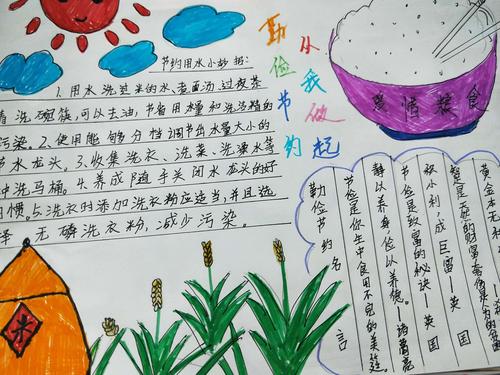 节约用水小妙招:
1.用水洗过米的水、煮面汤、过夜茶
清洗碗筷,可以去油,节省用水量和洗洁精的
污染。2、使用能够分档调节出水量大小的
节水龙头。3、收集洗衣、洗菜、洗澡水等
冲洗马桶。4.养成随手关闭水龙头的好
习惯。5、洗衣时添加洗衣粉应适当,并且选
择无磷洗衣粉,减少污染。
勤俭节约
从我做起
爱惜粮食
米
黄金本无种
智是天
积小利,成巨富—英国
节俭是致富的秘诀—英国
静以养身俭以养德。—诸葛亮
节俭是你一生中食用不完的美筵。
勤俭节约名言